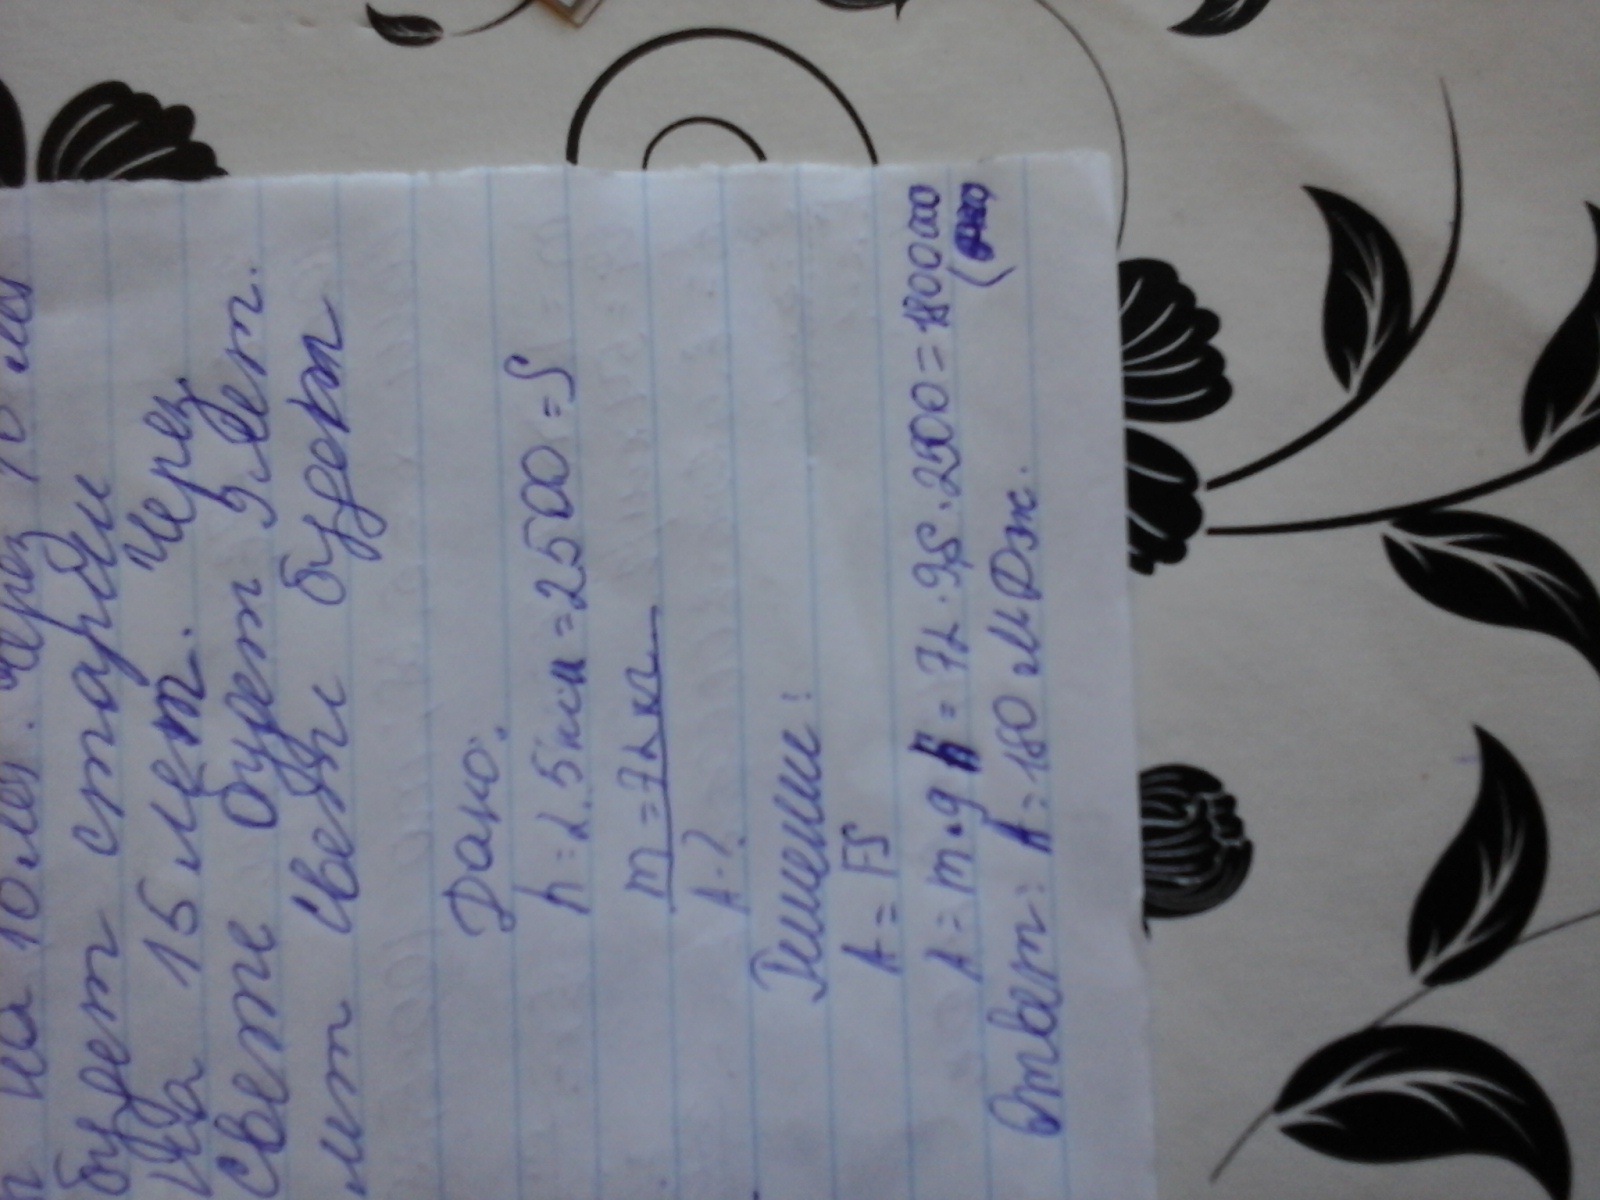 на 10 лет. Через 10 лет
будет старды
на 15 лет. Через
свете будет 9 лет.
лет сведы будет
Дано:
h=2.5км=2500=S
m=72кг
A-?
Решение:
A=FS
A=m·g h=72·9,8·2500=1800000
Ответ: A=180 МДж.